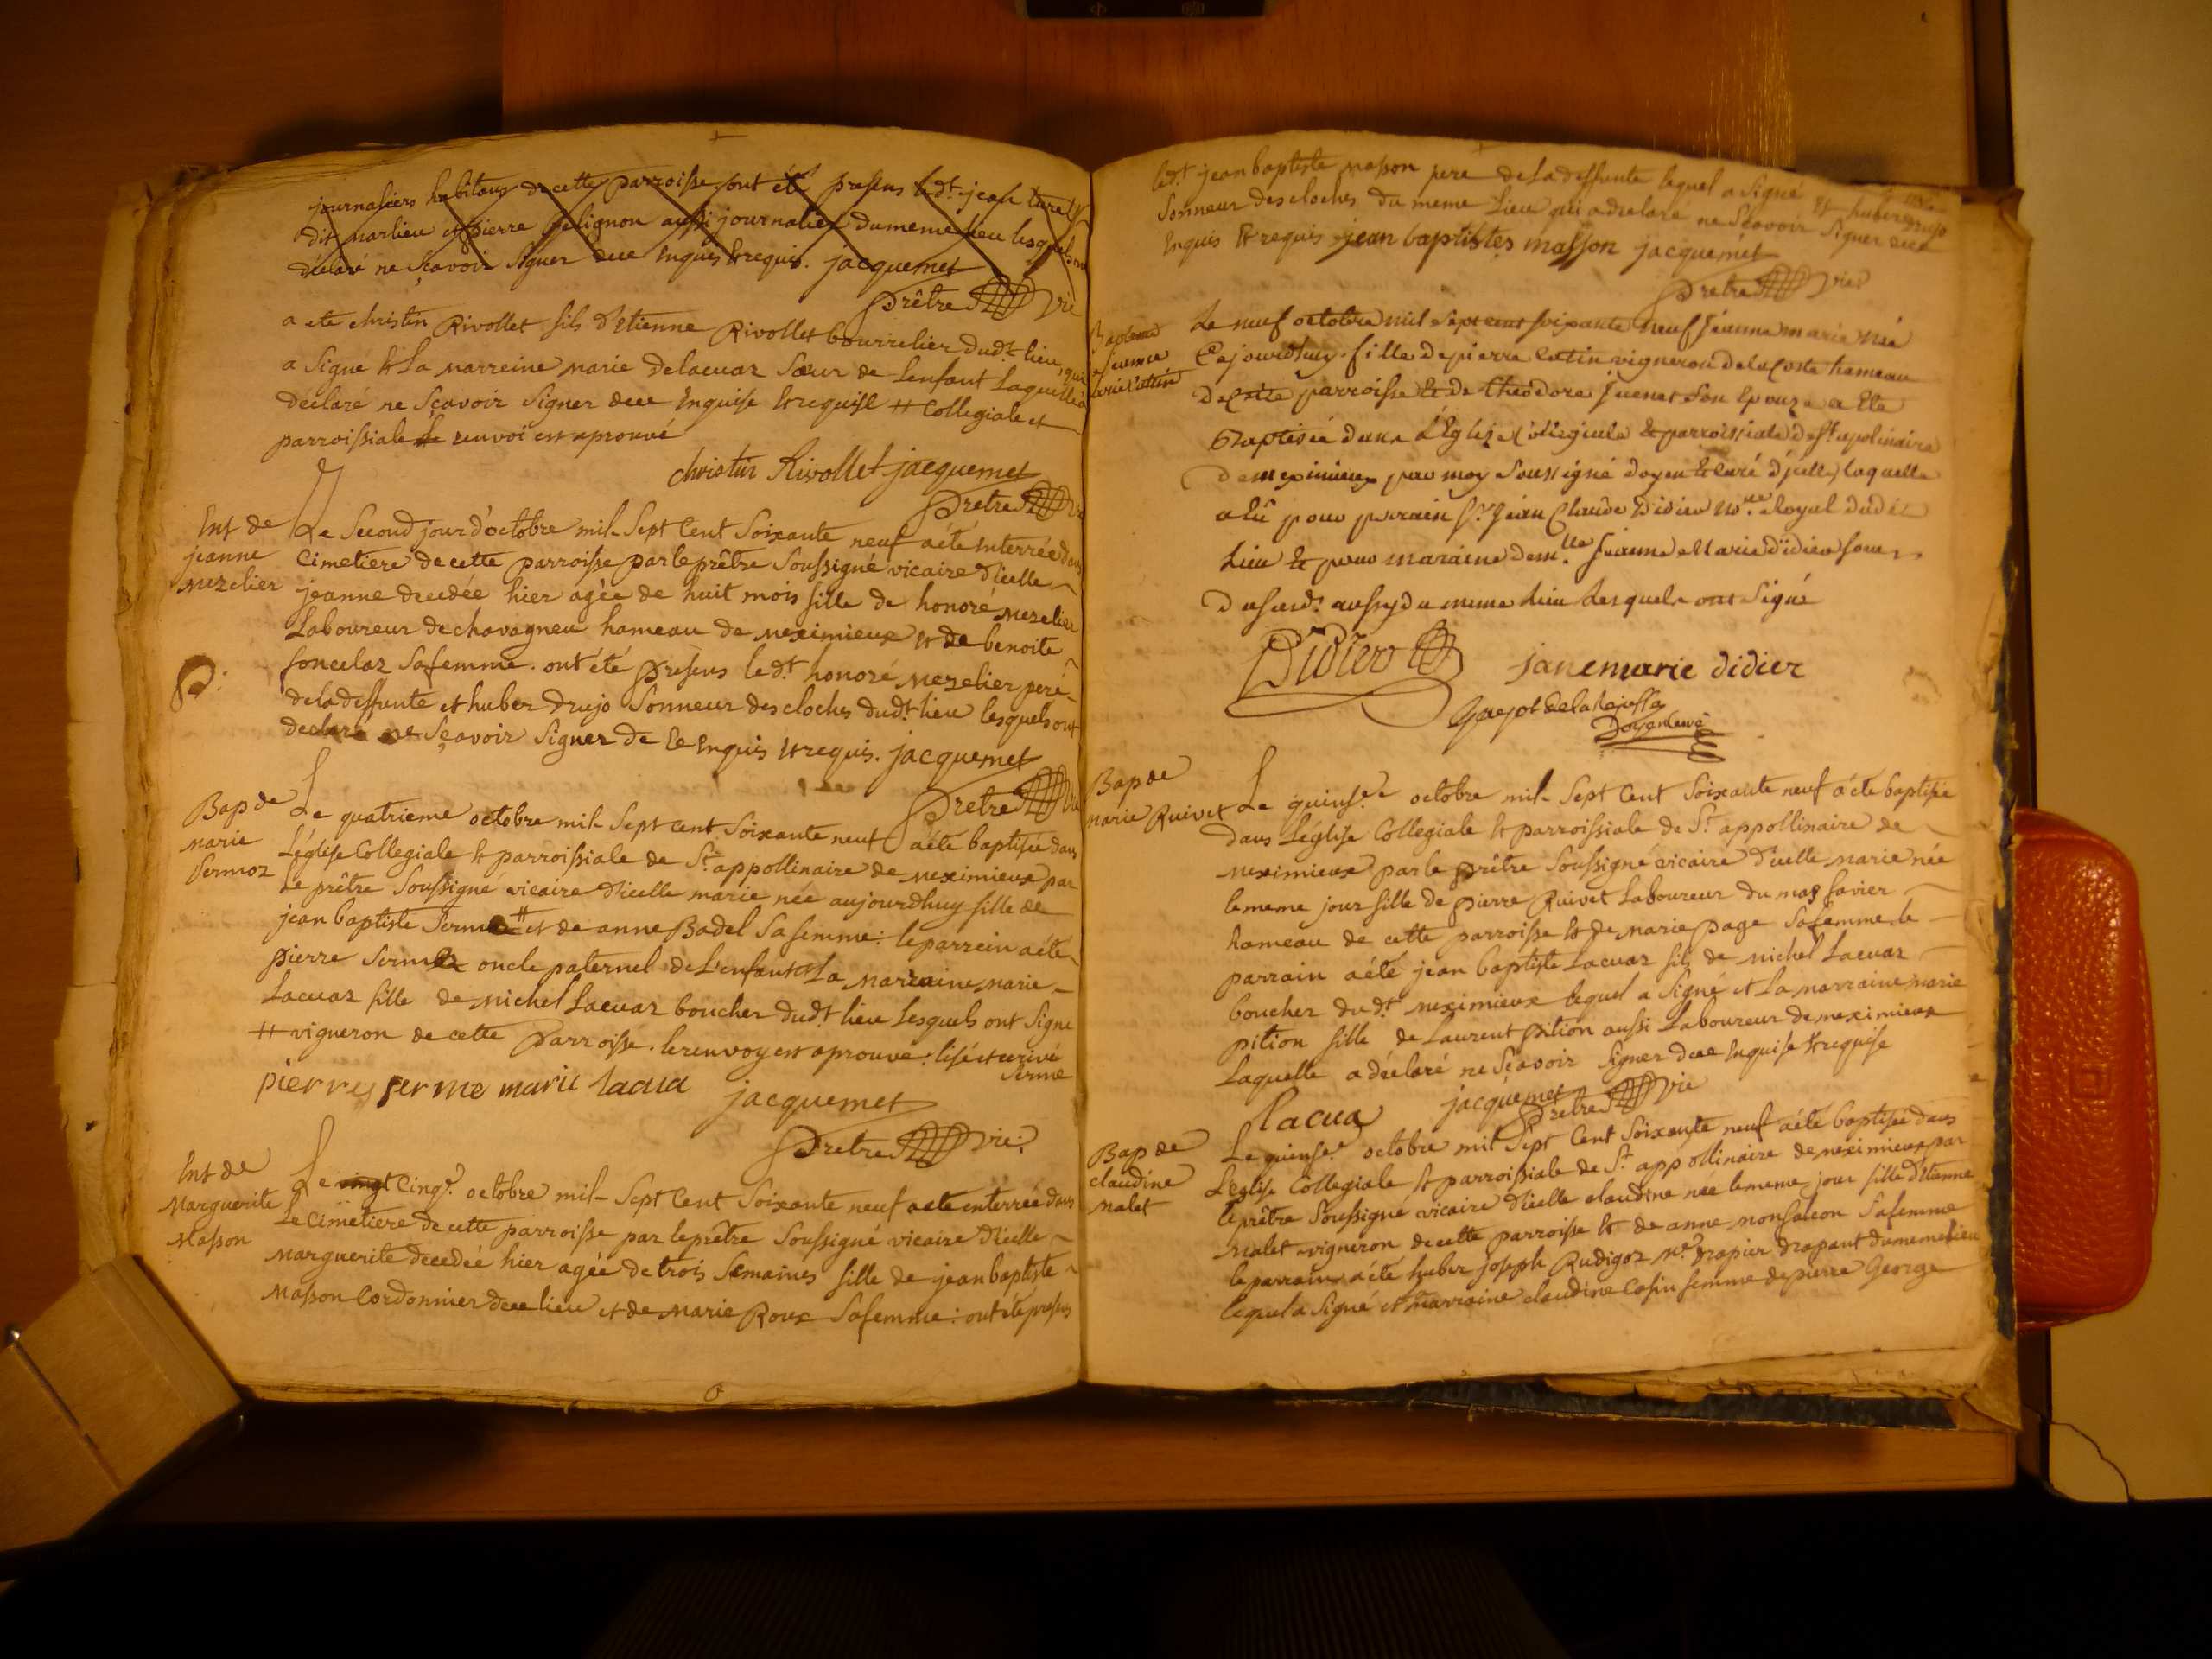 journaliers habitans de cette parroisse ont été presens led.t jean
dit marlieu et pierre pelignon aussi journalier du meme lieu lesquels ont
déclaré ne sçavoir signer de ce enquis et requis. jacquemet
prêtre vic
a ete christin Rivollet fils d'etienne Rivollet bourrelier dud.t lieu, qui
a signé et la marreine marie delacuaz sœur de lenfant laquelle a
declaré ne sçavoir signer de ce enquise et requise # collegiale et
parroissiale le renvoi est aprouvé
christin Rivollet jacquemet
pretre vic
Ent de
jeanne
mezelier
Le second jour d'octobre mil sept cent soixante neuf a été enterrée dans
cimetiere de cette parroisse par le prêtre soussigné vicaire d'icelle
jeanne decedée hier agée de huit mois fille de honoré mezelier
laboureur de chavagneu hameau de meximieux et de benoite
foncelaz sa femme. ont été presens led.t honoré mezelier peré
de la deffunte et huber drujo sonneur des cloches dud.t lieu lesquels ont
declaré ne sçavoir signer de ce enquis et requis. jacquemet
pretre vic
Bap de
marie
sermoz
Le quatrieme octobre mil sept cent soixante neuf a été baptisée dans
L'église collegiale et parroissiale de S.t appollinaire de meximieux par
le prêtre soussigné vicaire d'icelle marie née aujourdhuy fille de
jean baptiste serme # et de anne Badel sa femme: le parrein a été
pierre serme oncle paternel de l'enfant et la marraine marie
lacuaz fille de michel lacuaz boucher dud.t lieu lesquels ont signé
# vigneron de cette parroisse. le renvoy est aprouvé: lisé et ecrivé
serme
pierre serme marie lacua jacquemet
pretre vic:
Ent de
Marguerite
Masson
Le vingt cinq.e octobre mil sept cent soixante neuf a ete enterrée dans
le cimetiere de cette parroisse par le prêtre soussigné vicaire d'icelle
marguerite decedée hier agée de trois semaines fille de jean baptiste
masson cordonnier de ce lieu et de marie Roux sa femme: ont été presens
led.t jean baptiste masson pere de la deffunte lequel a signé et huber drujo
sonneur des cloches du meme lieu qui a declaré ne sçavoir signer de ce
enquis et requis jean baptistes masson jacquemet
pretre vic?
Bapteme
jeanne
marie Catin
Le neuf octobre mil sept cent soixante neuf jeanne marie née
Cejourdhuy fille de pierre Catin vigneron de la Coste hameau
de cette parroisse et de theodore juenet son epouze a ete
Baptisée dans l'Eglize collegiale et parroissiale de S.t apolinaire
de meximieux par moy soussigné doyen et curé d'icelle, laquelle
a eû pour parain S.r jean Claude Didier No.re Royal dudit
Lieu et pour maraine dem.lle jeanne Marie didier soeur
dususd.t aussy du meme lieu lesquels ont signé
Didier janemarie didier
Doyen curé
Bap de
marie Ruivet
Le quinse.e octobre mil sept cent soixante neuf a été baptisée
dans l'église collegiale et parroissiale de S.t appollinaire de
meximieux par le prêtre soussigné vicaire d'icelle marie née
le meme jour fille de pierre Ruivet laboureur du mas favier
hameau de cette parroisse et de marie page sa femme le
parrain a été jean baptiste lacuaz fils de michel lacuaz
boucher dud.t meximieux lequel a signé et la marraine marie
pition fille de laurent pition aussi laboureur de meximieux
laquelle a déclaré ne sçavoir signer de ce enquise et requise
lacua jacquemet
pretre vic
Bap de
claudine
malet
Le quinse.e octobre mil sept cent soixante neuf a été baptisée dans
L'eglise collegiale et parroissiale de S.t appollinaire de meximieux par
le prêtre soussigné vicaire d'icelle claudine née le meme jour fille d'etienne
malet vigneron de cette parroisse et de anne monfalcon sa femme
le parrain a été huber joseph Rudigoz M.e drapier drapant du meme lieu
lequel a signé et marraine claudine Casin femme de pierre George